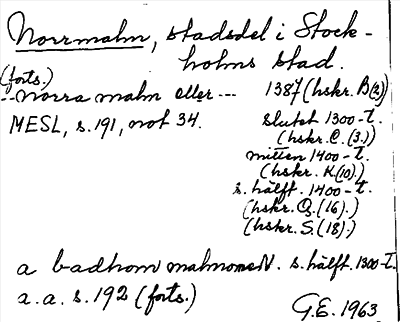 Norrmalm, stadsdel i Stock-
holms stad.
(forts.)
--norra malm eller --- 1387 (hskr. B(2))
MESL, s. 191, not 34. slutet 1300-t.
(hskr. C. (3.))
mitten 1400-t.
(hskr. K (10).)
s. hälft. 1400-t.
(hskr. Q. (16).)
(hskr. S. (18).)
a badhom malmomen N. s. hälft. 1300-t.
a. a. s. 192 (forts.)
G.E. 1963.